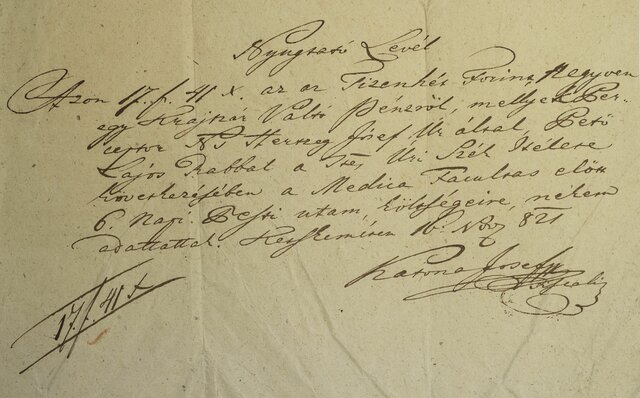 Nyugtató Levél
Azon 17. f. 41 x az az Tizenhét Forint Negyven
egy Krajtzár Váltó Pénzről, mellyek Per-
ceptor Herczeg Josef Ur által, Pető
Lajos Rabbal a Tts. Úri Szék Itélete
következésében a Medica Facultas előtt
6. Napi Pesti utam költségeire, nékem
adattattak. Kecskeméten 16. Nov 821
Katona Josef
Fiscalis
17. f. 41 x